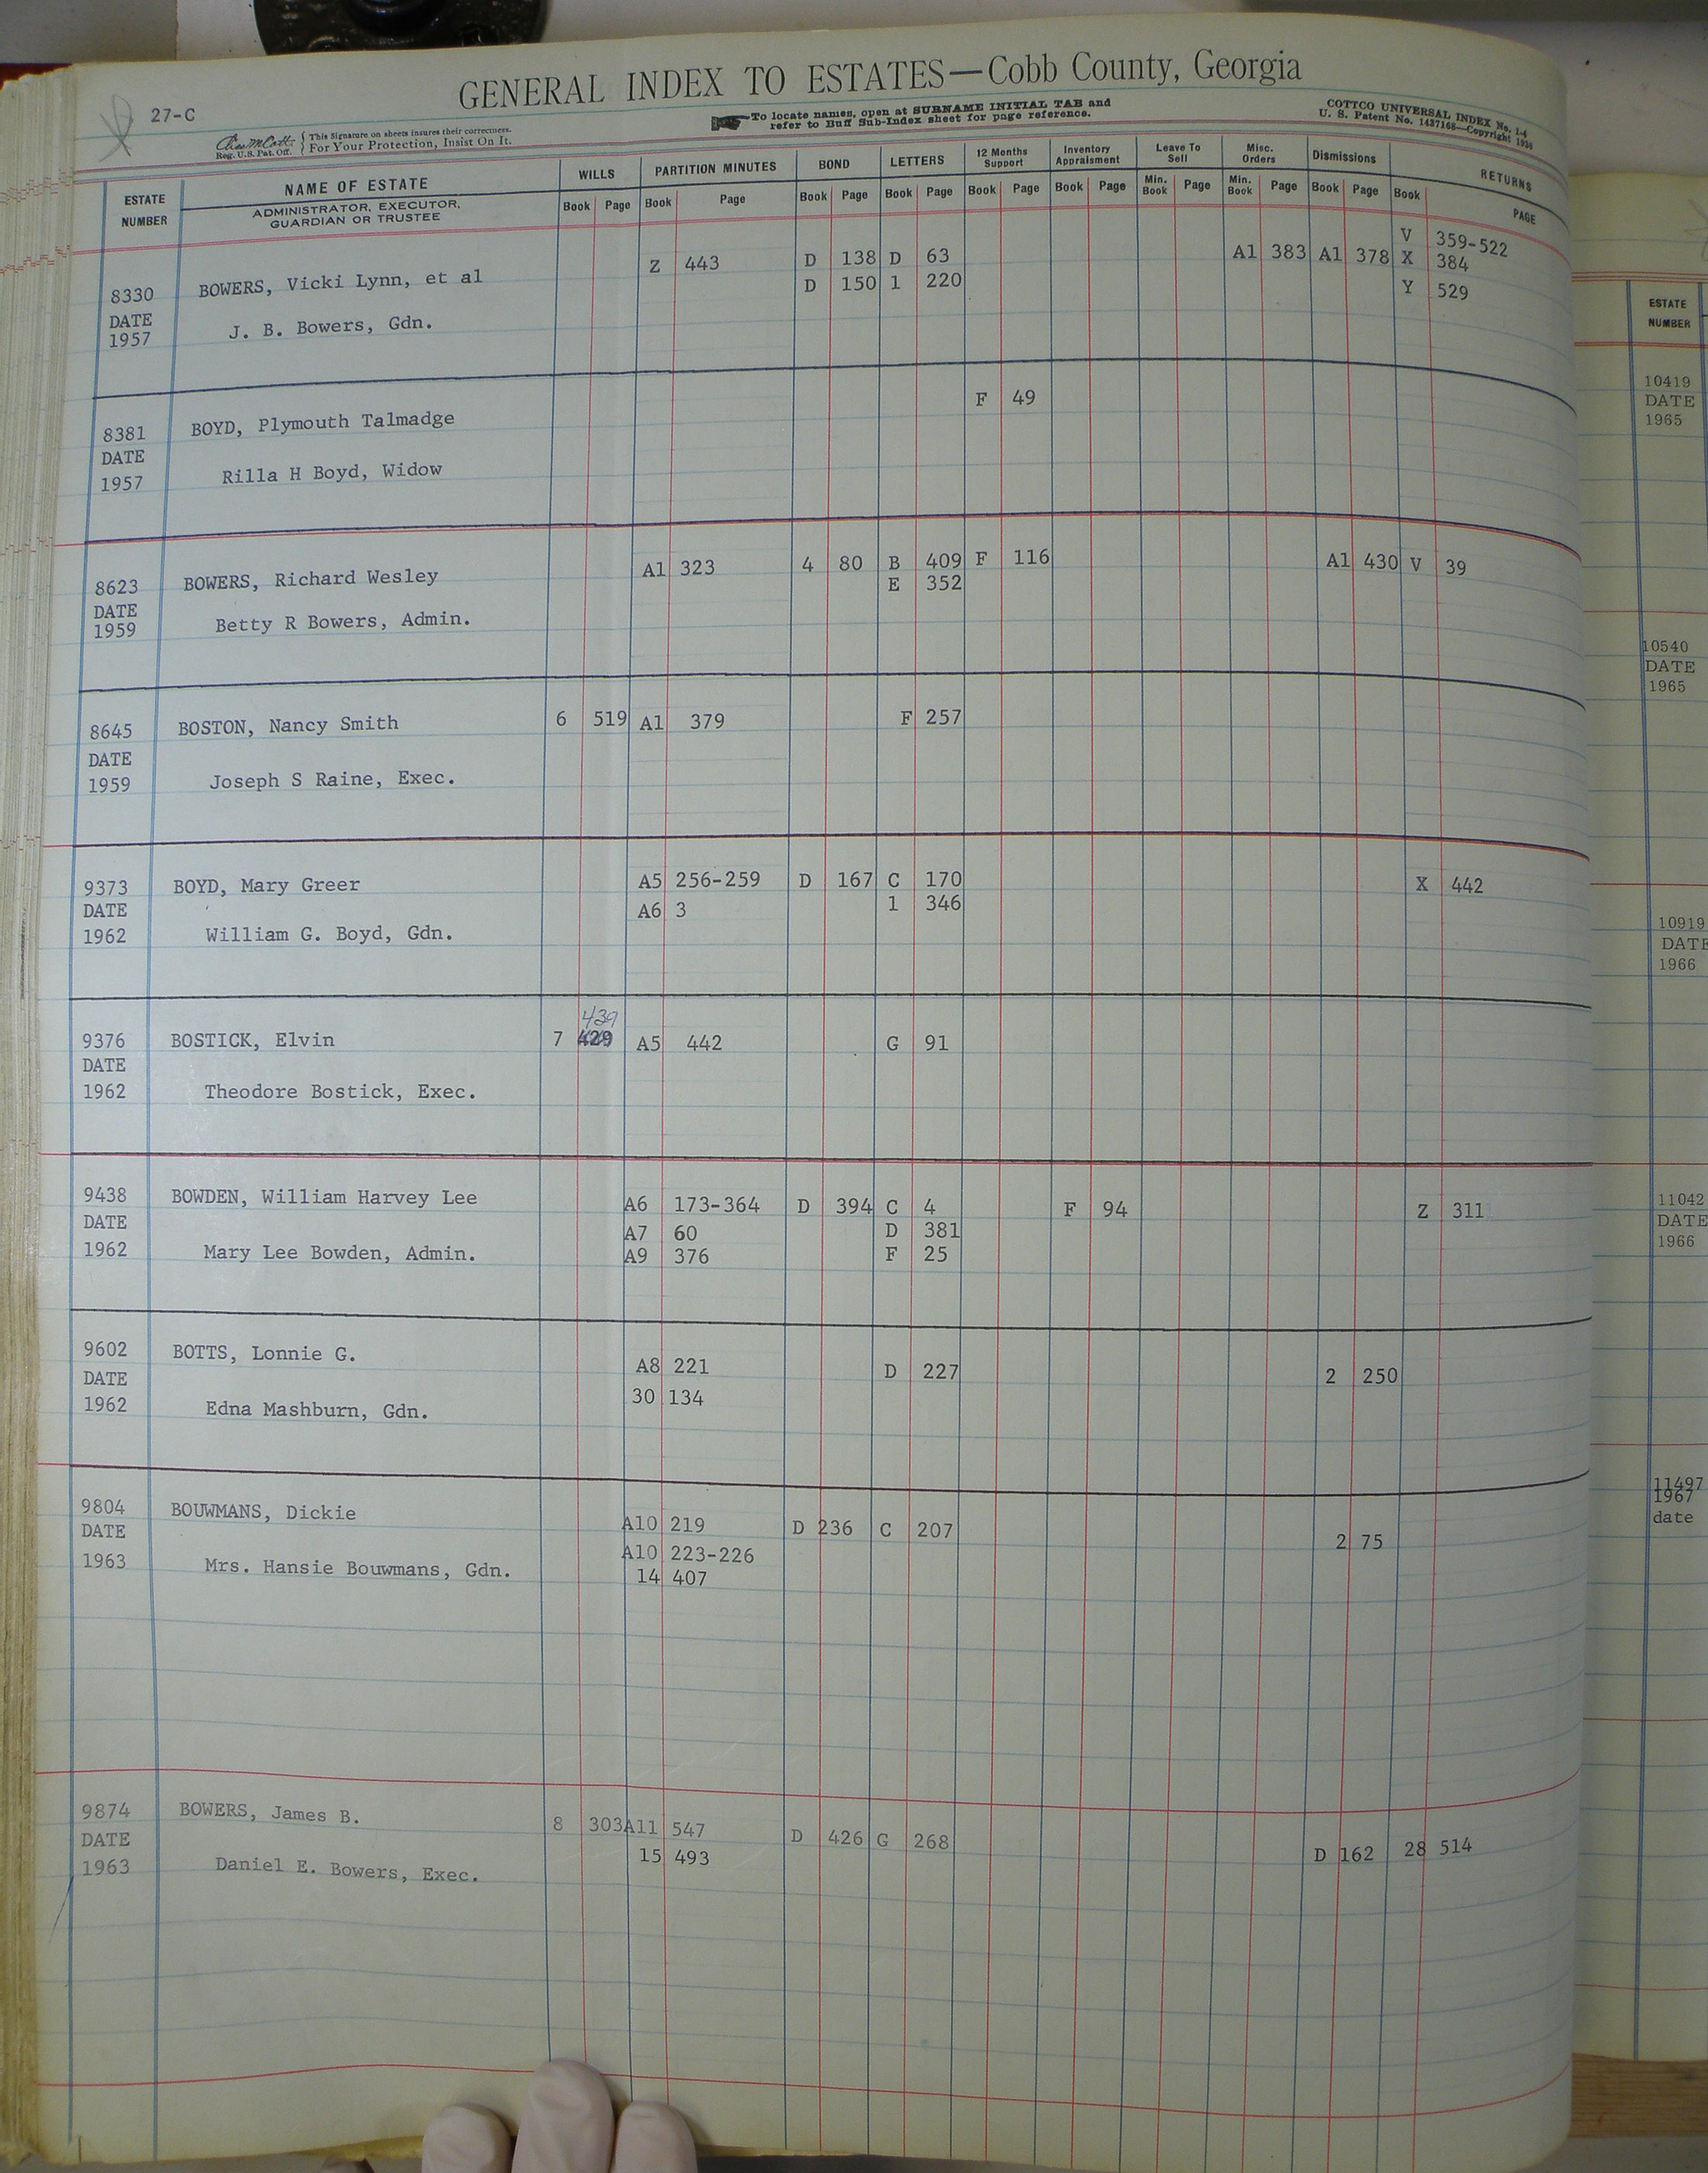 GENERAL INDEX TO ESTATES—Cobb County, Georgia
27-C
To locate names, open at SURNAME INITIAL TAB and
refer to Buff Sub-Index sheet for page reference.
COTTCO UNIVERSAL INDEX No. 1-4
U. S. Patent No. 1437168—Copyright 1936
Reg. U.S. Pat. Off.
This Signature on sheets insures their correctness.
For Your Protection, Insist On It.
ESTATE NUMBER
NAME OF ESTATE
ADMINISTRATOR, EXECUTOR, GUARDIAN OR TRUSTEE
WILLS PARTITION MINUTES BOND LETTERS 12 Months Support Inventory Appraisment Leave To Sell Misc. Orders Dismissions RETURNS
Book Page Book Page Book Page Book Page Book Page Book Page Min. Book Page Min. Book Page Book Page Book PAGE
V 359-522
Z 443 D 138 D 63 A1 383 A1 378 X 384
8330 BOWERS, Vicki Lynn, et al D 150 1 220 Y 529
DATE
1957 J. B. Bowers, Gdn.
F 49
8381 BOYD, Plymouth Talmadge
DATE
1957 Rilla H Boyd, Widow
A1 323 4 80 B 409 F 116 A1 430 V 39
8623 BOWERS, Richard Wesley E 352
DATE
1959 Betty R Bowers, Admin.
8645 BOSTON, Nancy Smith 6 519 A1 379 F 257
DATE
1959 Joseph S Raine, Exec.
9373 BOYD, Mary Greer A5 256-259 D 167 C 170 X 442
DATE A6 3 1 346
1962 William G. Boyd, Gdn.
439
9376 BOSTICK, Elvin 7 429 A5 442 G 91
DATE
1962 Theodore Bostick, Exec.
9438 BOWDEN, William Harvey Lee A6 173-364 D 394 C 4 F 94 Z 311
DATE A7 60 D 381
1962 Mary Lee Bowden, Admin. A9 376 F 25
9602 BOTTS, Lonnie G. A8 221 D 227 2 250
DATE 30 134
1962 Edna Mashburn, Gdn.
9804 BOUWMANS, Dickie A10 219 D 236 C 207 2 75
DATE A10 223-226
1963 Mrs. Hansie Bouwmans, Gdn. 14 407
9874 BOWERS, James B. 8 303 A11 547 D 426 G 268 D 162 28 514
DATE 15 493
1963 Daniel E. Bowers, Exec.
ESTATE
NUMBER
10419
DATE
1965
10540
DATE
1965
10919
DATE
1966
11042
DATE
1966
11497
1967
date